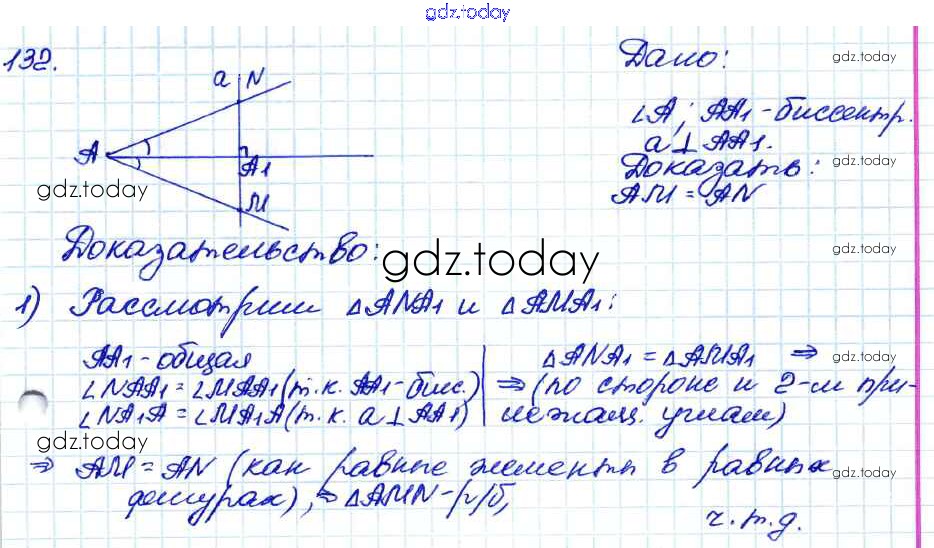 gdz.today
132.
a N
A
A1
M
gdz.today
Дано:
gdz.today
∠A; AA1 - биссектр.
a ⊥ AA1.
Доказать:
gdz.today
AM = AN
Доказательство:
gdz.today
gdz.today
1) Рассмотрим △ANA1 и △AMA1:
AA1 - общая
∠NAA1 = ∠MAA1 (т.к. AA1 - бис.)
∠NA1A = ∠MA1A (т.к. a ⊥ AA1)
△ANA1 = △AMA1 ⇒
gdz.today
⇒ (по стороне и 2-м при-
лежащ. углам)
gdz.today
gdz.today
⇒ AM = AN (как равные элементы в равных
gdz.today
фигурах), ⇒ △AMN - р/б,
ч.т.д.
gdz.today